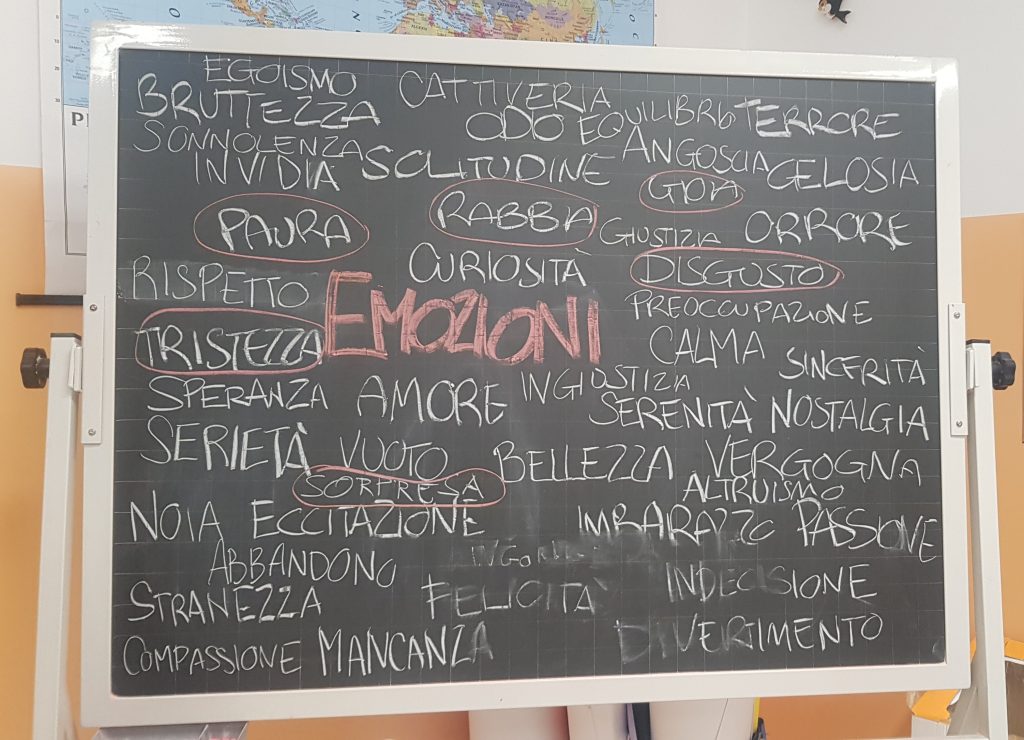 EGOISMO CATTIVERIA
BRUTTEZZA ODIO EQUILIBRIO TERRORE
SONNOLENZA ANGOSCIA
INVIDIA SOLITUDINE GELOSIA
GIOIA
PAURA RABBIA GIUSTIZIA ORRORE
RISPETTO CURIOSITÀ DISGUSTO
EMOZIONI PREOCCUPAZIONE
TRISTEZZA CALMA SINCERITÀ
SPERANZA AMORE INGIUSTIZIA
SERENITÀ NOSTALGIA
SERIETÀ VUOTO BELLEZZA VERGOGNA
SORPRESA ALTRUISMO
NOIA ECCITAZIONE IMBARAZZO PASSIONE
ABBANDONO
STRANEZZA FELICITÀ INDECISIONE
COMPASSIONE MANCANZA DIVERTIMENTO